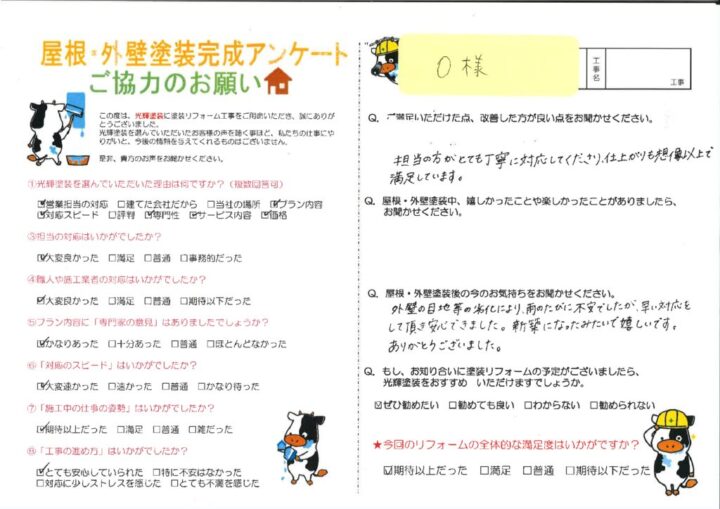 屋根・外壁塗装完成アンケート
ご協力のお願い
この度は、光輝塗装に塗装リフォーム工事をご用命いただき、誠にありがとうございました。
光輝塗装を選んでいただいたお客様の声を聴く事ほど、私たちの仕事にやりがいと、今後の情熱を与えてくれるものはございません。
是非、貴方のお声をお聞かせください。
①光輝塗装を選んでいただいた理由は何ですか？（複数回答可）
☑営業担当の対応 □建てた会社だから □当社の場所 ☑プラン内容
☑対応スピード □評判 ☑専門性 ☑サービス内容 ☑価格
③担当の対応はいかがでしたか？
☑大変良かった □満足 □普通 □事務的だった
④職人や施工業者の対応はいかがでしたか？
☑大変良かった □満足 □普通 □期待以下だった
⑤プラン内容に「専門家の意見」はありましたでしょうか？
☑かなりあった □十分あった □普通 □ほとんどなかった
⑥「対応のスピード」はいかがでしたか？
☑大変速かった □速かった □普通 □かなり待った
⑦「施工中の仕事の姿勢」はいかがでしたか？
☑期待以上だった □満足 □普通 □雑だった
⑧「工事の進め方」はいかがでしたか？
☑とても安心していられた □特に不安はなかった
□対応に少しストレスを感じた □とても不満を感じた
O様
工事名
工事
Q. ご満足いただけた点、改善した方が良い点をお聞かせください。
担当の方がとても丁寧に対応してくださり、仕上がりも想像以上で
満足しています。
Q. 屋根・外壁塗装中、嬉しかったことや楽しかったことがありましたら、
お聞かせください。
Q. 屋根・外壁塗装後の今のお気持ちをお聞かせください。
外壁の目地等の劣化により、雨のたびに不安でしたが、早い対応を
して頂き安心できました。新築になったみたいで嬉しいです。
ありがとうございました。
Q. もし、お知り合いに塗装リフォームの予定がございましたら、
光輝塗装をおすすめ いただけますでしょうか。
☑ぜひ勧めたい □勧めても良い □わからない □勧められない
★今回のリフォームの全体的な満足度はいかがですか？
☑期待以上だった □満足 □普通 □期待以下だった